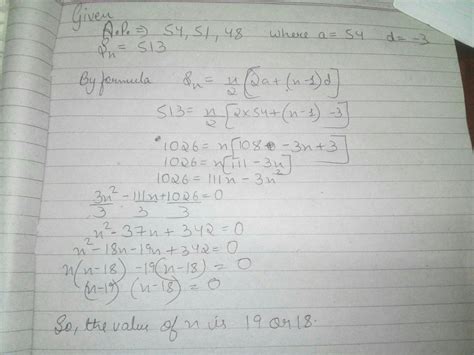 Given
A.P. ⇒ 54, 51, 48 where a = 54 d = -3
Sn = 513
By formula Sn = n/2 [2a + (n-1)d]
513 = n/2 [2×54 + (n-1) -3]
1026 = n[108 - 3n + 3]
1026 = n[111 - 3n]
1026 = 111n - 3n²
3n²/3 - 111n/3 + 1026/3 = 0
n² - 37n + 342 = 0
n² - 18n - 19n + 342 = 0
n(n-18) -19(n-18) = 0
(n-19) (n-18) = 0
So, the value of n is 19 or 18.